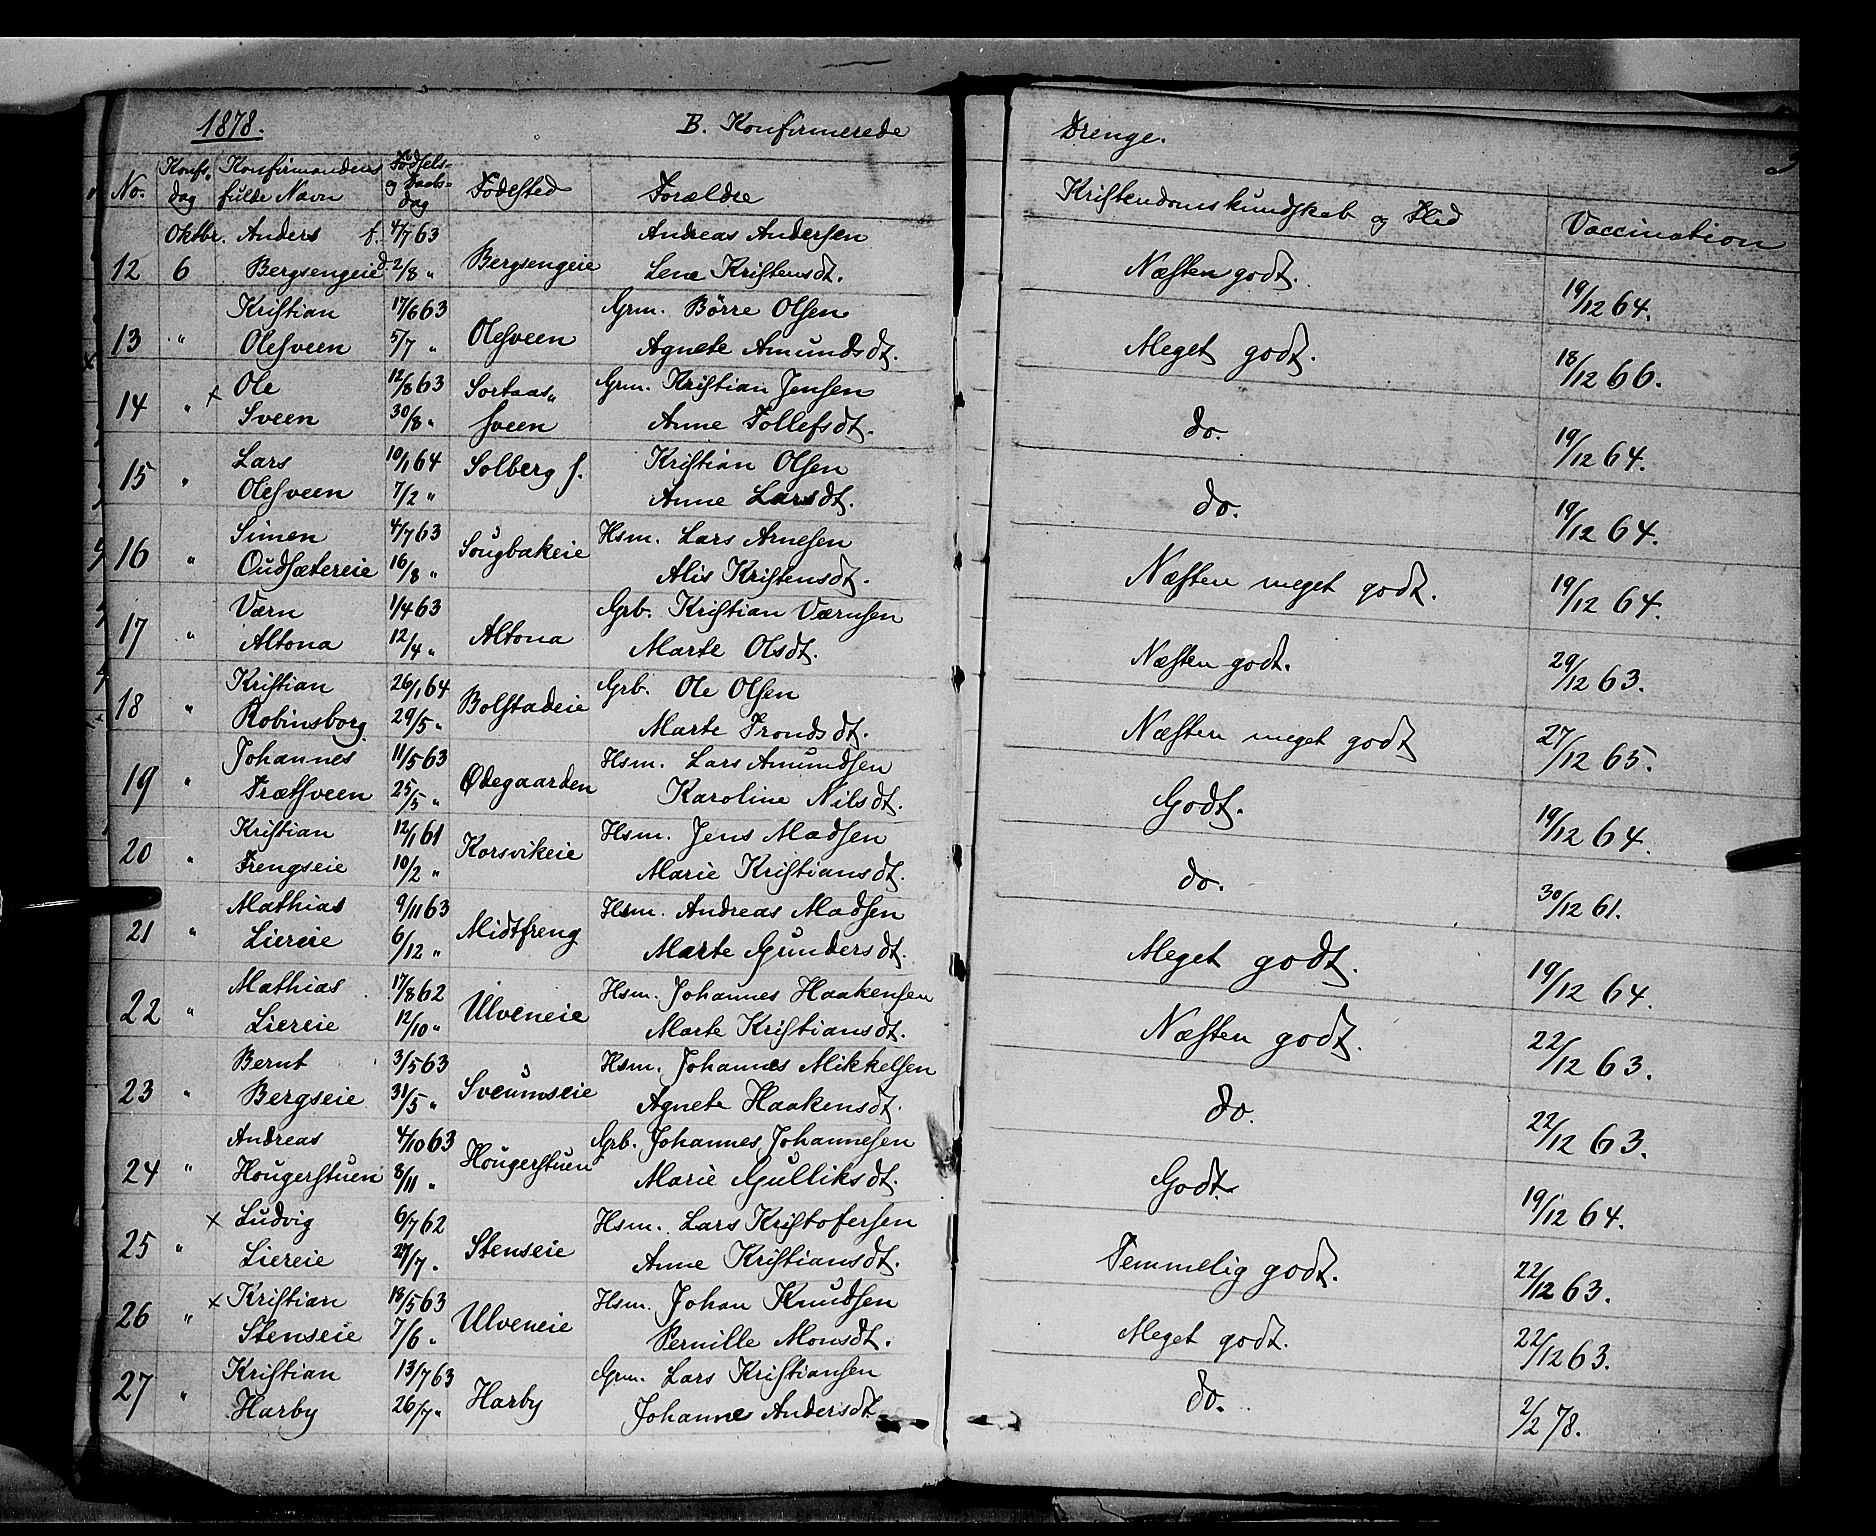 1878. B. Konfirmerede Drenge.
No. Konfs. dag Konfirmandens fulde Navn Fødsels- og Daabs- dag Fødested Forældre Kristendomskundskab og Flid Vaccination
Oktbr. Anders f. 4/7 63 Andreas Andersen
12 6 Bergsengeie d. 2/8 " Bergsengeie Lene Kristensdt. Næsten godt. 19/12 64.
Kristian 17/6 63 Grm. Börre Olsen
13 " Olesveen 5/7 " Olesveen Agnete Amundsdt. Meget godt. 18/12 66.
x Ole 12/8 63 Sortaas" Grm. Kristian Jensen
14 " Sveen 30/8 " sveen Anne Tollefsdt. do. 19/12 64.
Lars 10/1 64 Solberg s. Kristian Olsen
15 " Olesveen 7/2 " Anne Larsdt. do. 19/12 64.
Simen 4/7 63 Hsm. Lars Arnesen
16 " Oudsætereie 16/8 " Sougbakeie Alis Kristensdt. Næsten meget godt. 19/12 64.
Værn 1/4 63 Grb. Kristian Værnsen
17 " Altona 12/4 " Altona Marte Olsdt. Næsten godt. 29/12 63.
Kristian 26/1 64 Grb. Ole Olsen
18 " Robinsborg 29/5 " Bolstadeie Marte Trondsdt. Næsten meget godt 27/12 65.
Johannes 11/5 63 Hsm. Lars Amundsen
19 " Trætsveen 25/5 " Ødegaarden Karoline Nilsdt. Godt. 19/12 64.
Kristian 12/1 61 Hsm. Jens Madsen
20 " Frengseie 10/2 " Korsvikeie Marie Kristiansdt. do. 30/12 61.
Mathias 9/11 63 Hsm. Andreas Madsen
21 " Liereie 6/12 " Midtfreng Marte Gundersdt. Meget godt. 19/12 64.
Mathias 17/8 62 Hsm. Johannes Haakensen
22 " Liereie 12/10 " Ulveneie Marte Kristiansdt. Næsten godt. 22/12 63.
Bernt 3/5 63 Hsm. Johannes Mikkelsen
23 " Bergseie 31/5 " Sveumseie Agnete Haakensdt. do. 22/12 63.
Andreas 4/10 63 Grb. Johannes Johannesen
24 " Hougerstuen 8/11 " Hougerstuen Marie Gulliksdt. Godt. 19/12 64.
x Ludvig 6/7 62 Hsm. Lars Kristofersen
25 " Liereie 27/7 . Stenseie Anne Kristiansdt. Temmelig godt. 22/12 63.
x Kristian 18/5 63 Hsm. Johan Knudsen
26 " Stenseie 7/6 " Ulveneie Pernille Monsdt. Meget godt. 22/12 63.
Kristian 13/7 63 Grm. Lars Kristiansen
27 " Harby 26/7 " Harby Johanne Andersdt. do. 2/2 78.